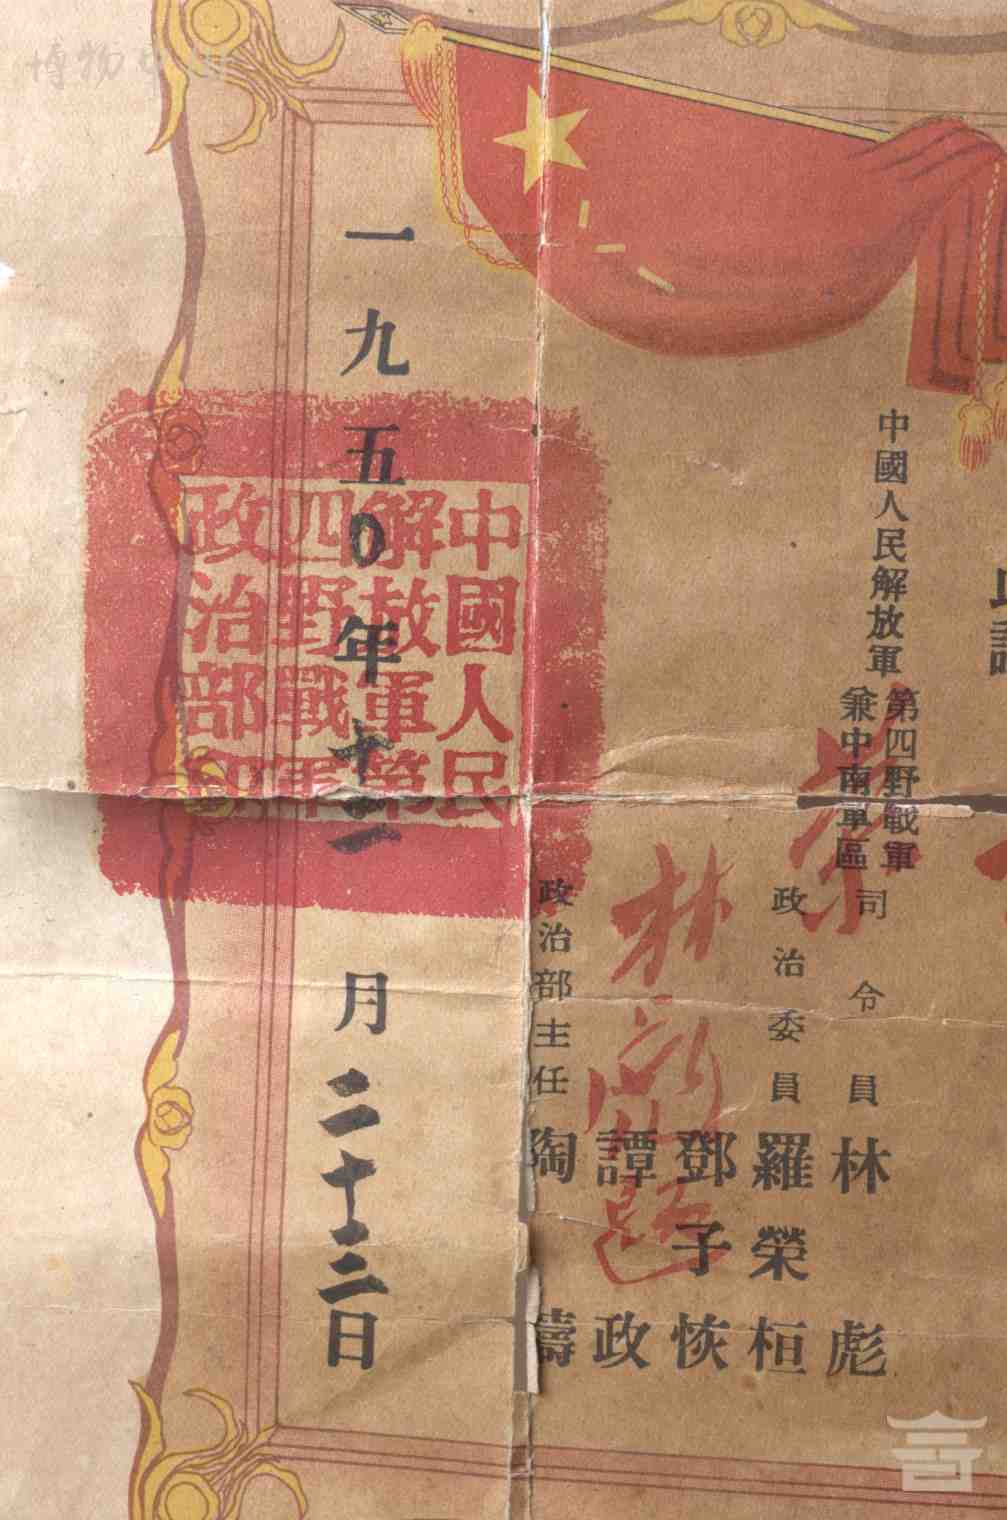 中國人民解放軍
第四野戰軍
兼中南軍區
司令員 林彪
政治委員 羅榮桓
鄧子恢
譚政
政治部主任 陶鑄
一九五〇年十二月二十三日
中國人民
解放軍第
四野戰軍
政治部印
林
題
博物